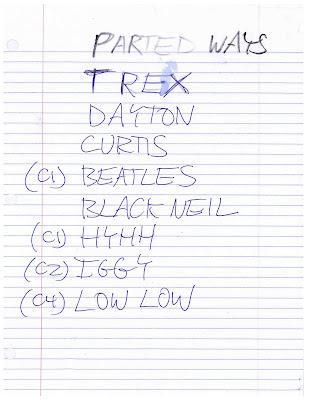 PARTED WAYS
T REX
DAYTON
CURTIS
(C1) BEATLES
BLACK NEIL
(C1) HYHH
(C2) IGGY
(C4) LOW LOW